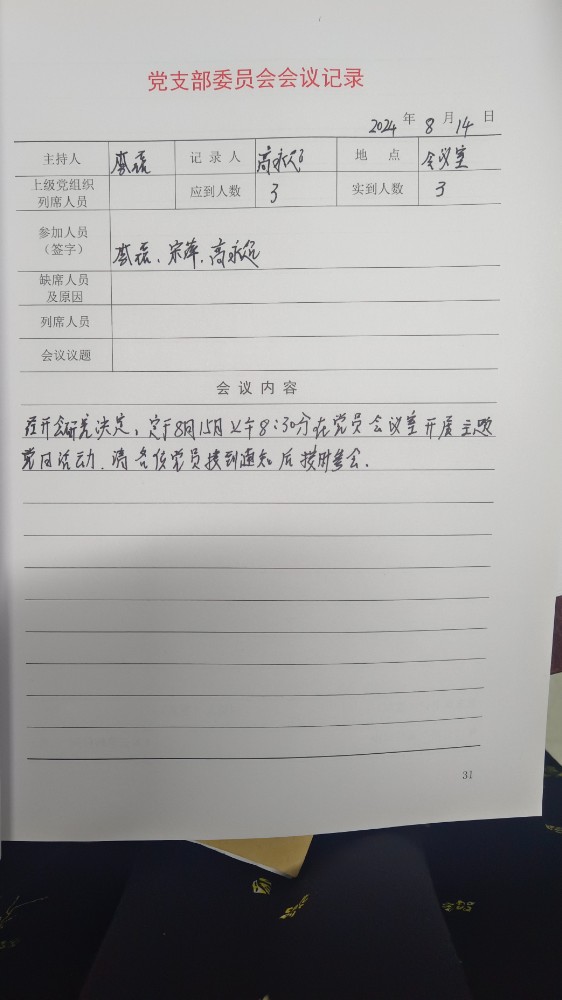 党支部委员会会议记录
2024 年 8 月 14 日
主持人 李磊 记录人 高永 地点 会议室
上级党组织列席人员 应到人数 3 实到人数 3
参加人员（签字） 李磊、宋萍、高永
缺席人员及原因
列席人员
会议议题
会议内容
召开会研究决定，定于8月15日上午8:30分在党员会议室开展主题
党日活动，请各位党员接到通知后按时参会.
31